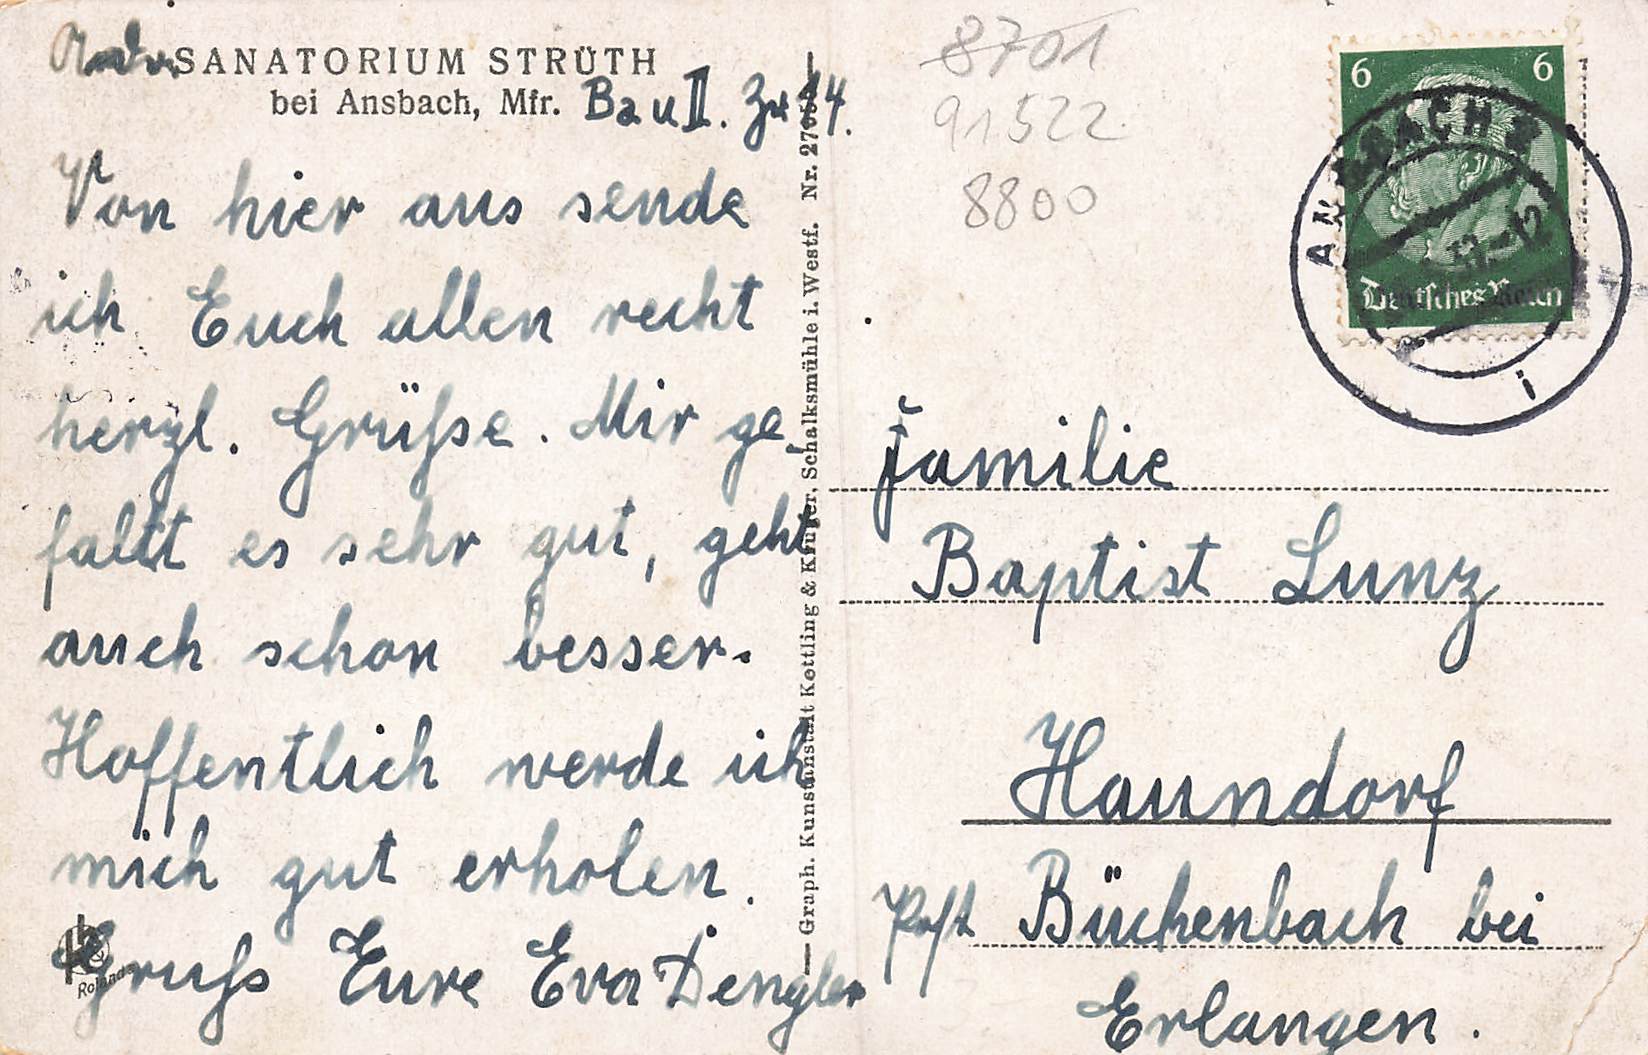 SANATORIUM STRÜTH
bei Ansbach, Mfr. Bau II. Zr 14.
Von hier aus sende
ich Euch allen recht
herzl. Grüße. Mir ge
fällt es sehr gut, geht
auch schon besser.
Hoffentlich werde ich
mich gut erholen.
Gruß Eure Eva Dengler
Roland
Graph. Kunstanstalt Kettling & Krüger, Schalksmühle i. Westf. Nr.
8701
91522
8800
6 6
Deutsches Reich
ANSBACH 2
i
Familie
Baptist Lunz
Haundorf
Post Büchenbach bei
Erlangen.